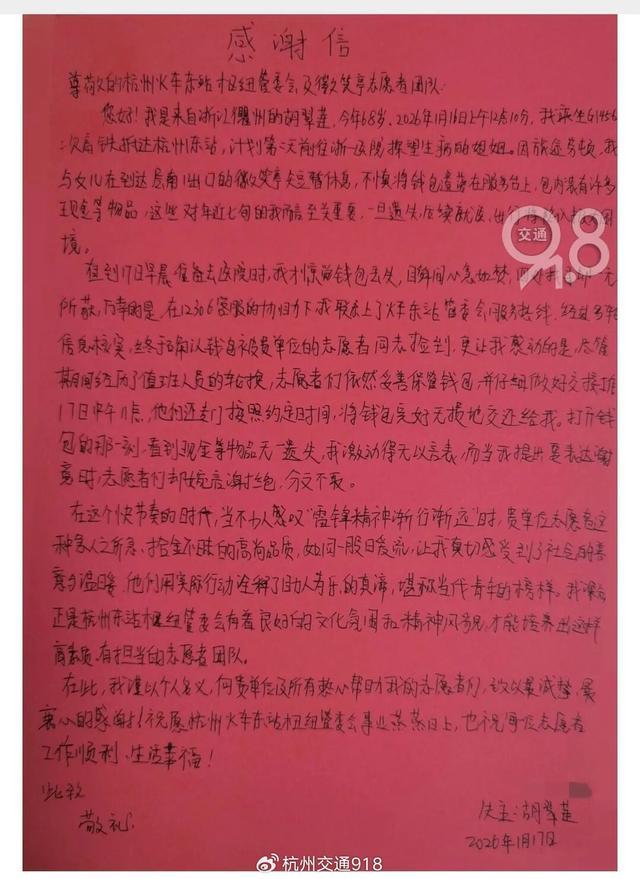 感谢信
尊敬的杭州火车东站枢纽管委会及微笑亭志愿者团队：
您好！我是来自浙江衢州的胡翠莲，今年68岁。2026年1月16日上午12点10分，我乘坐G1456
次高铁抵达杭州东站，计划第二天前往浙一医院探望生病的姐姐。因旅途劳顿，我
与女儿在到达层南1出口的微笑亭短暂休息，不慎将钱包遗落在服务台上，包内装有许多
现金等物品，这些对年近七旬的我而言至关重要，一旦遗失，后续就医、出行
境。
直到17日早晨准备去医院时，我才惊觉钱包丢失，因瞬间心急如焚，
所获。万幸的是，在12306客服的协助下我联系上了火车东站管委会服务热线，经过多轮
信息核实，终于确认钱包被贵单位的志愿者同志捡到，更让我感动的是，尽管
期间经历了值班人员的轮换，志愿者们依然妥善保管钱包，并仔细做好交接工作
17日中午11点，他们还专门按照约定时间，将钱包完好无损地交还给我。打开钱
包的那一刻，看到现金等物品无一遗失，我激动得无以言表，而当我提出要表达谢
意时，志愿者们却婉言谢绝，分文不取。
在这个快节奏的时代，当不少人感叹“雷锋精神渐行渐远”时，贵单位志愿者这
种急人之所急、拾金不昧的高尚品质，如同一股暖流，让我真切感受到了社会的善
意与温暖。他们用实际行动诠释了助人为乐的真谛，堪称当代青年的榜样。我深知
正是杭州东站枢纽管委会有着良好的文化氛围和精神风貌，才能培养出这样
高素质、有担当的志愿者团队。
在此，我谨以个人名义，向贵单位及所有热心帮助我的志愿者们，致以最诚挚、最
衷心的感谢！祝愿杭州火车东站枢纽管委会事业蒸蒸日上，也祝每位志愿者
工作顺利、生活幸福！
此致
敬礼
失主：胡翠莲
2026年1月17日
交通
91.8
杭州交通918